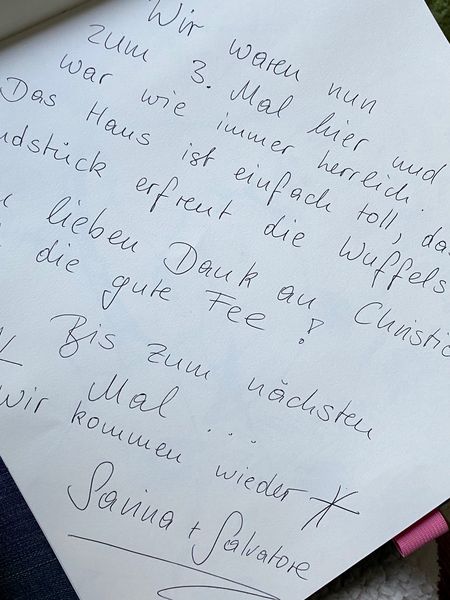 Wir waren nun
zum 3. Mal hier und
war wie immer herrlich.
Das Haus ist einfach toll, da
ndstück erfreut die Wuffels
lieben Dank an Christi
die gute Fee!
Bis zum nächsten
Mal ...
Wir kommen wieder
Sarina + Salvatore